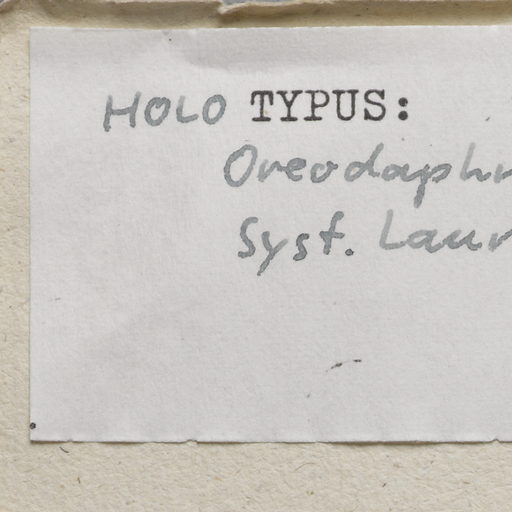 HOLO TYPUS:
Oreodaphn
Syst. Laur